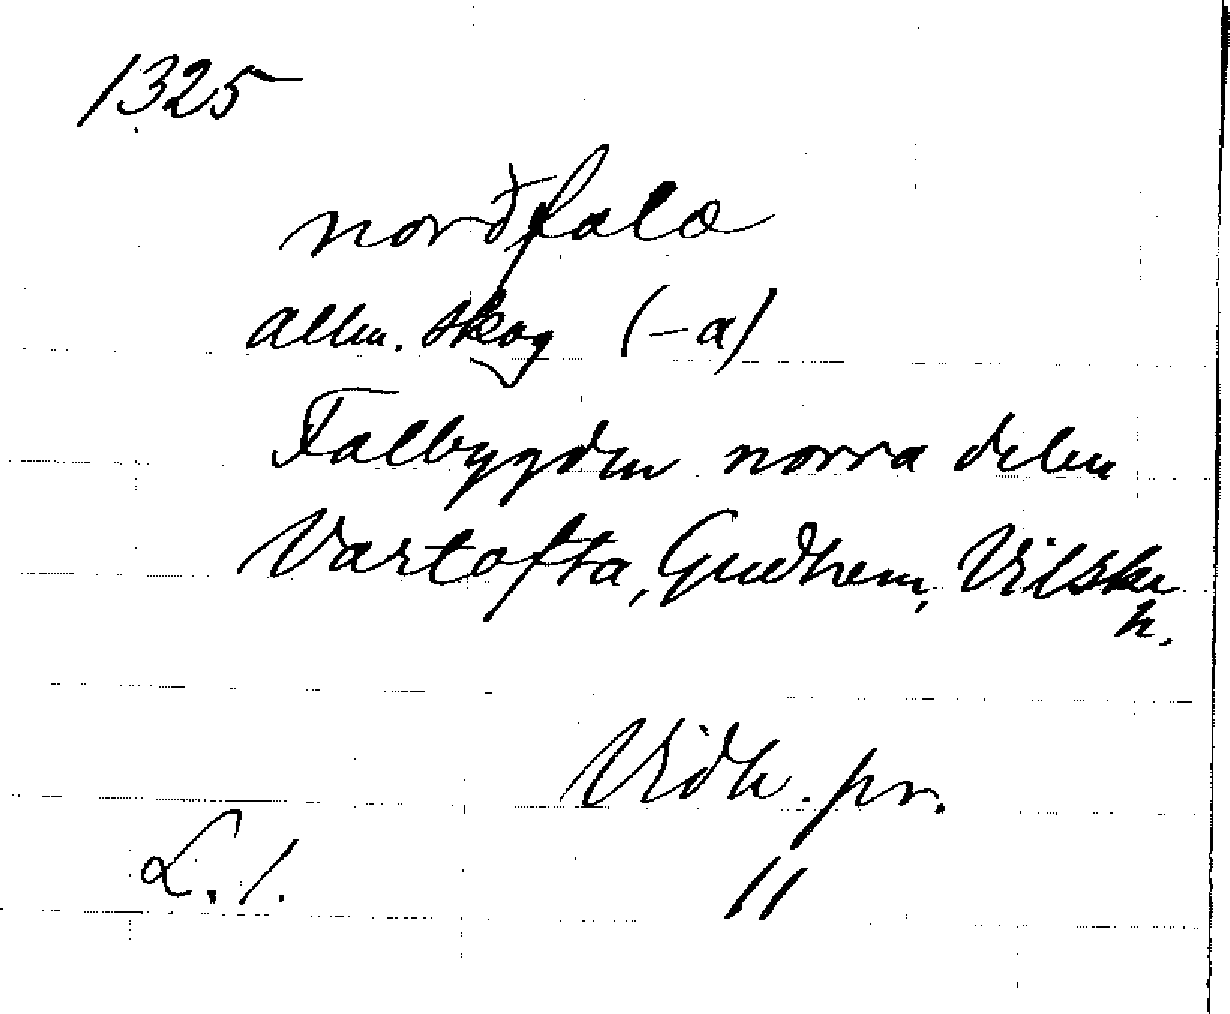 1325
norðfala
allm. skog (-a)
Falbygden norra delen
Vartofta, Gudhem, Vilske
h.
Vidh. pr.
L. 1. 11